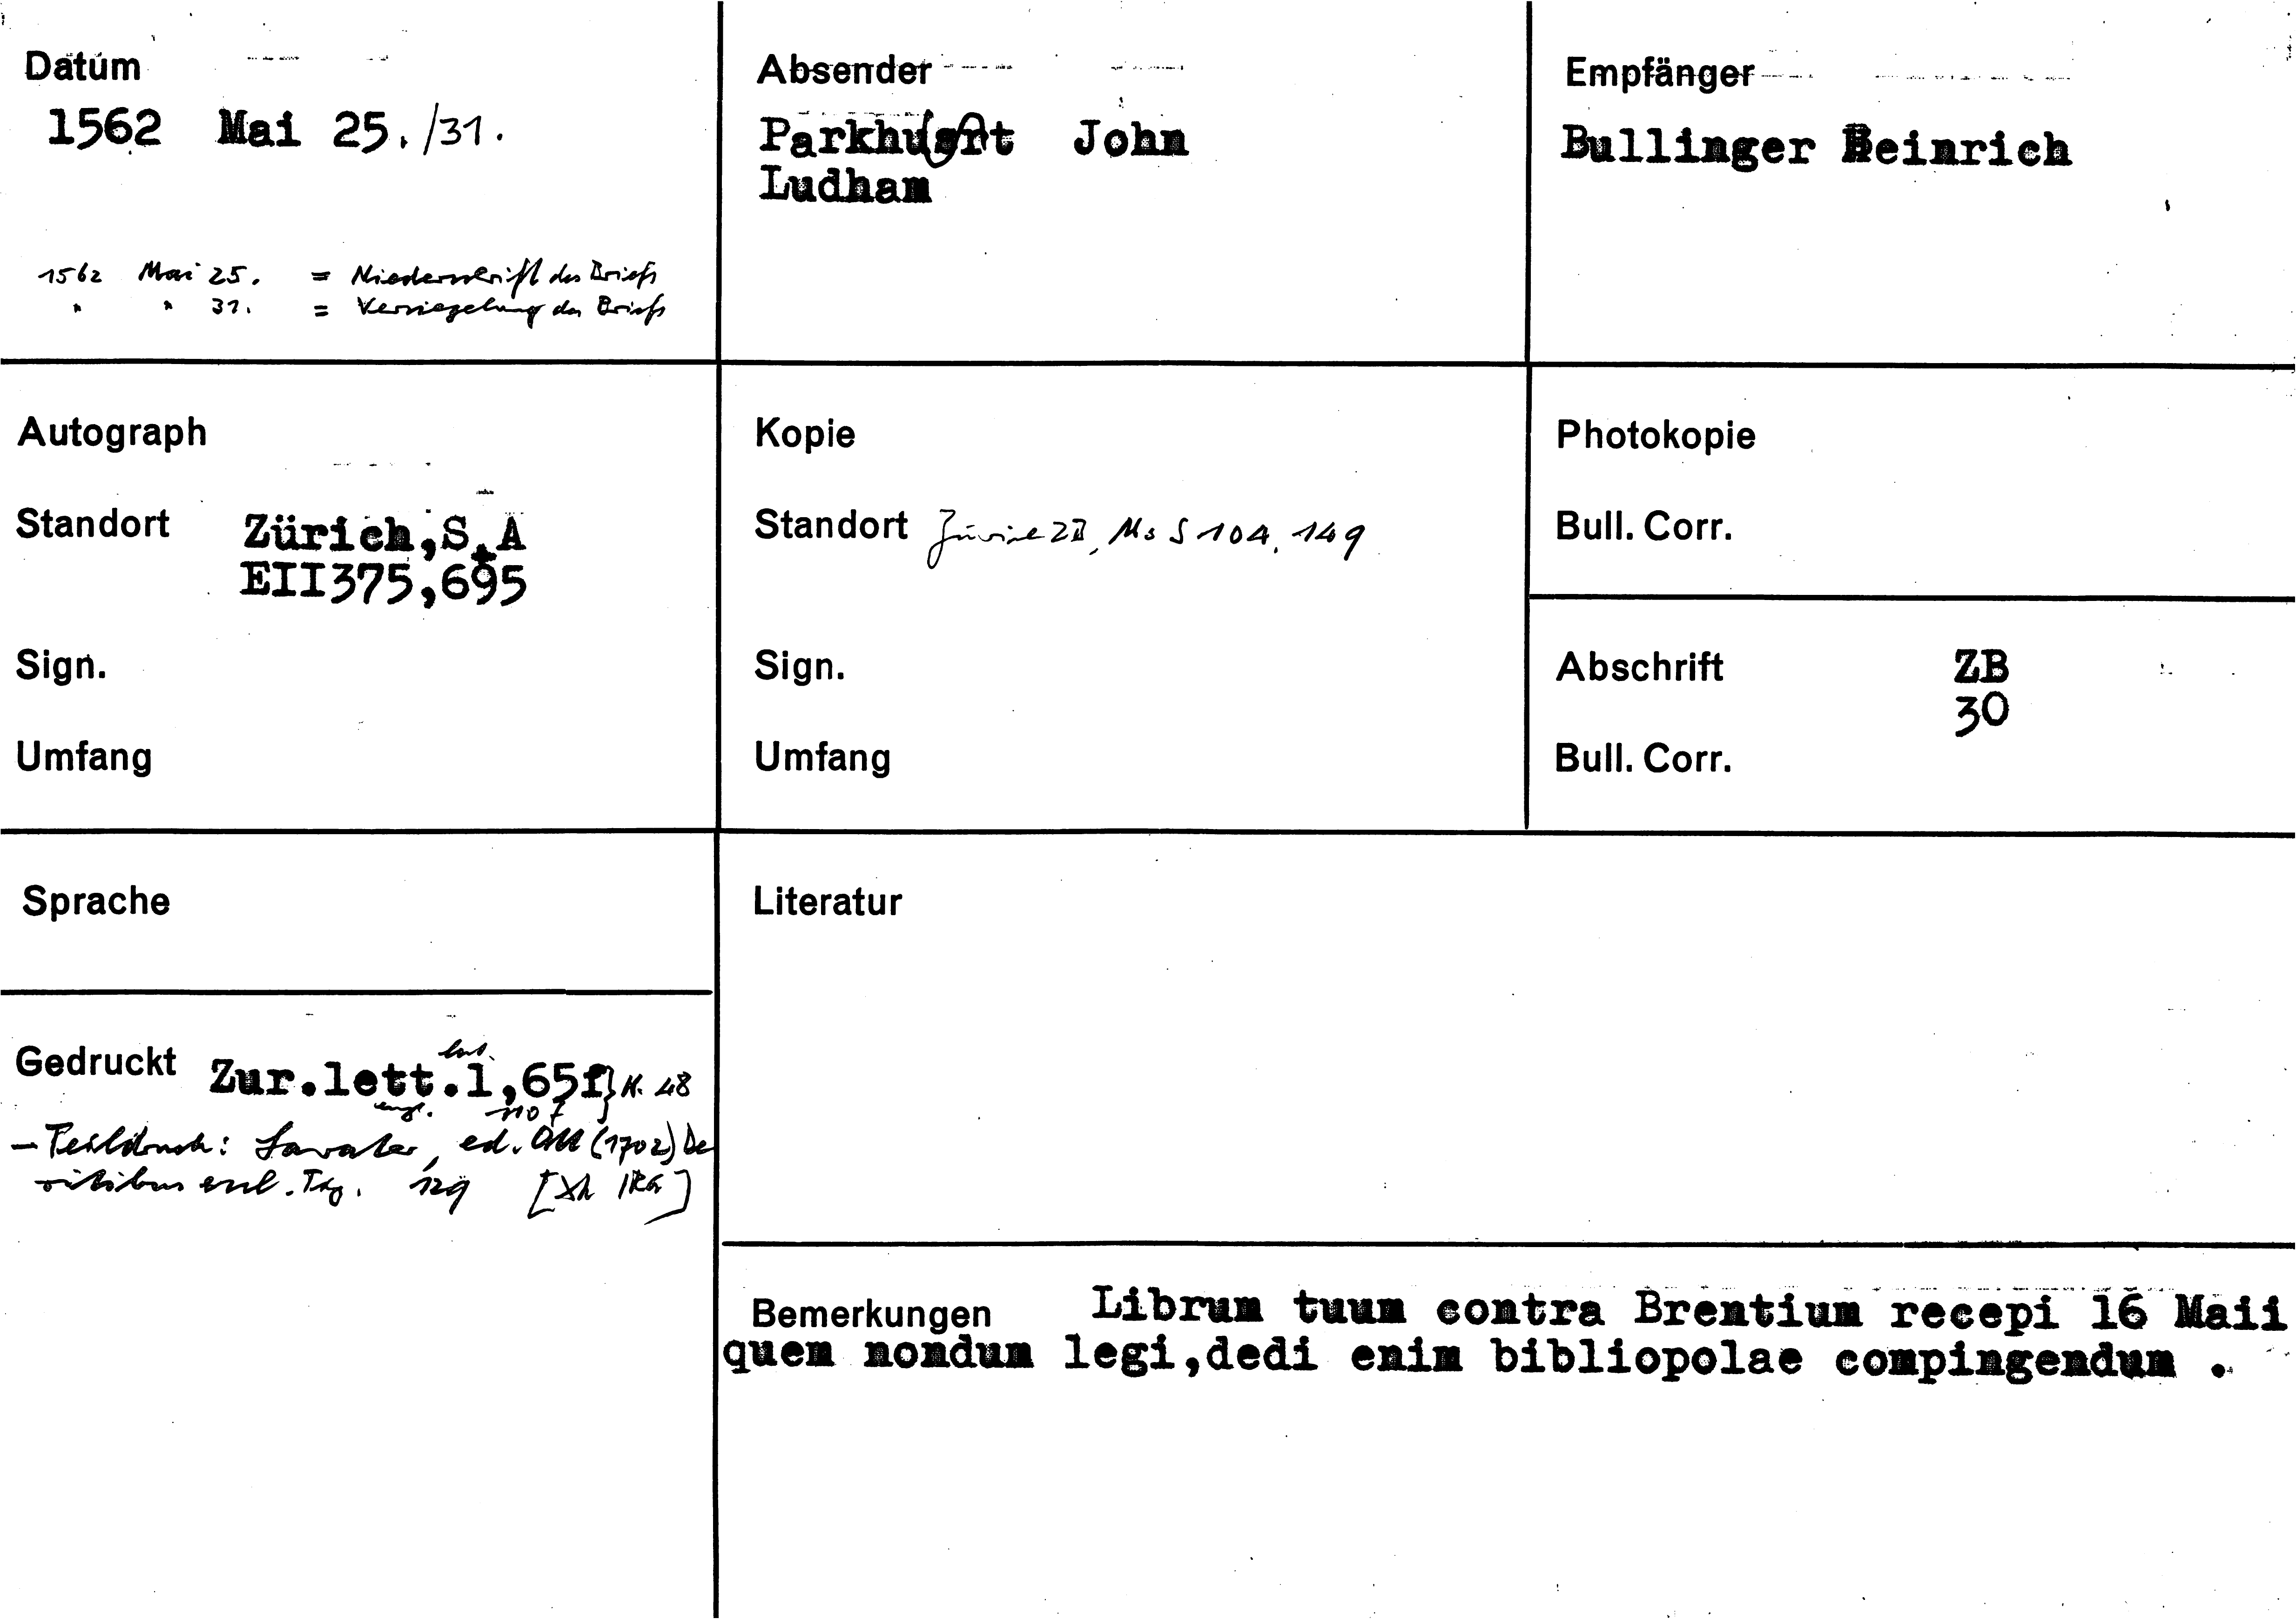 Datum
1562 Mai 25./31.
1562 Mai 25. = Niederschrift des Briefs
" " 31. = Versiegelung des Briefs
Absender
Parkhusrt John
Ludham
Empfänger
Bullinger Heinrich
Autograph
Standort Zürich,StA
EII375,695
Sign.
Umfang
Kopie
Standort Zürich ZB, Ms S 104, 149
Sign.
Umfang
Photokopie
Bull. Corr.
Abschrift ZB
30
Bull. Corr.
Sprache
Gedruckt Zur.lett.1,65f} N. 48
lat.
engl. 110 f
- Teildruck: Lavater, ed. Ott (1702) De
ritibus eccl. Tig. 129
Literatur
Bemerkungen Librum tuum contra Brentium recepi 16 Maii
quem nondum legi,dedi enim bibliopolae compingendum .